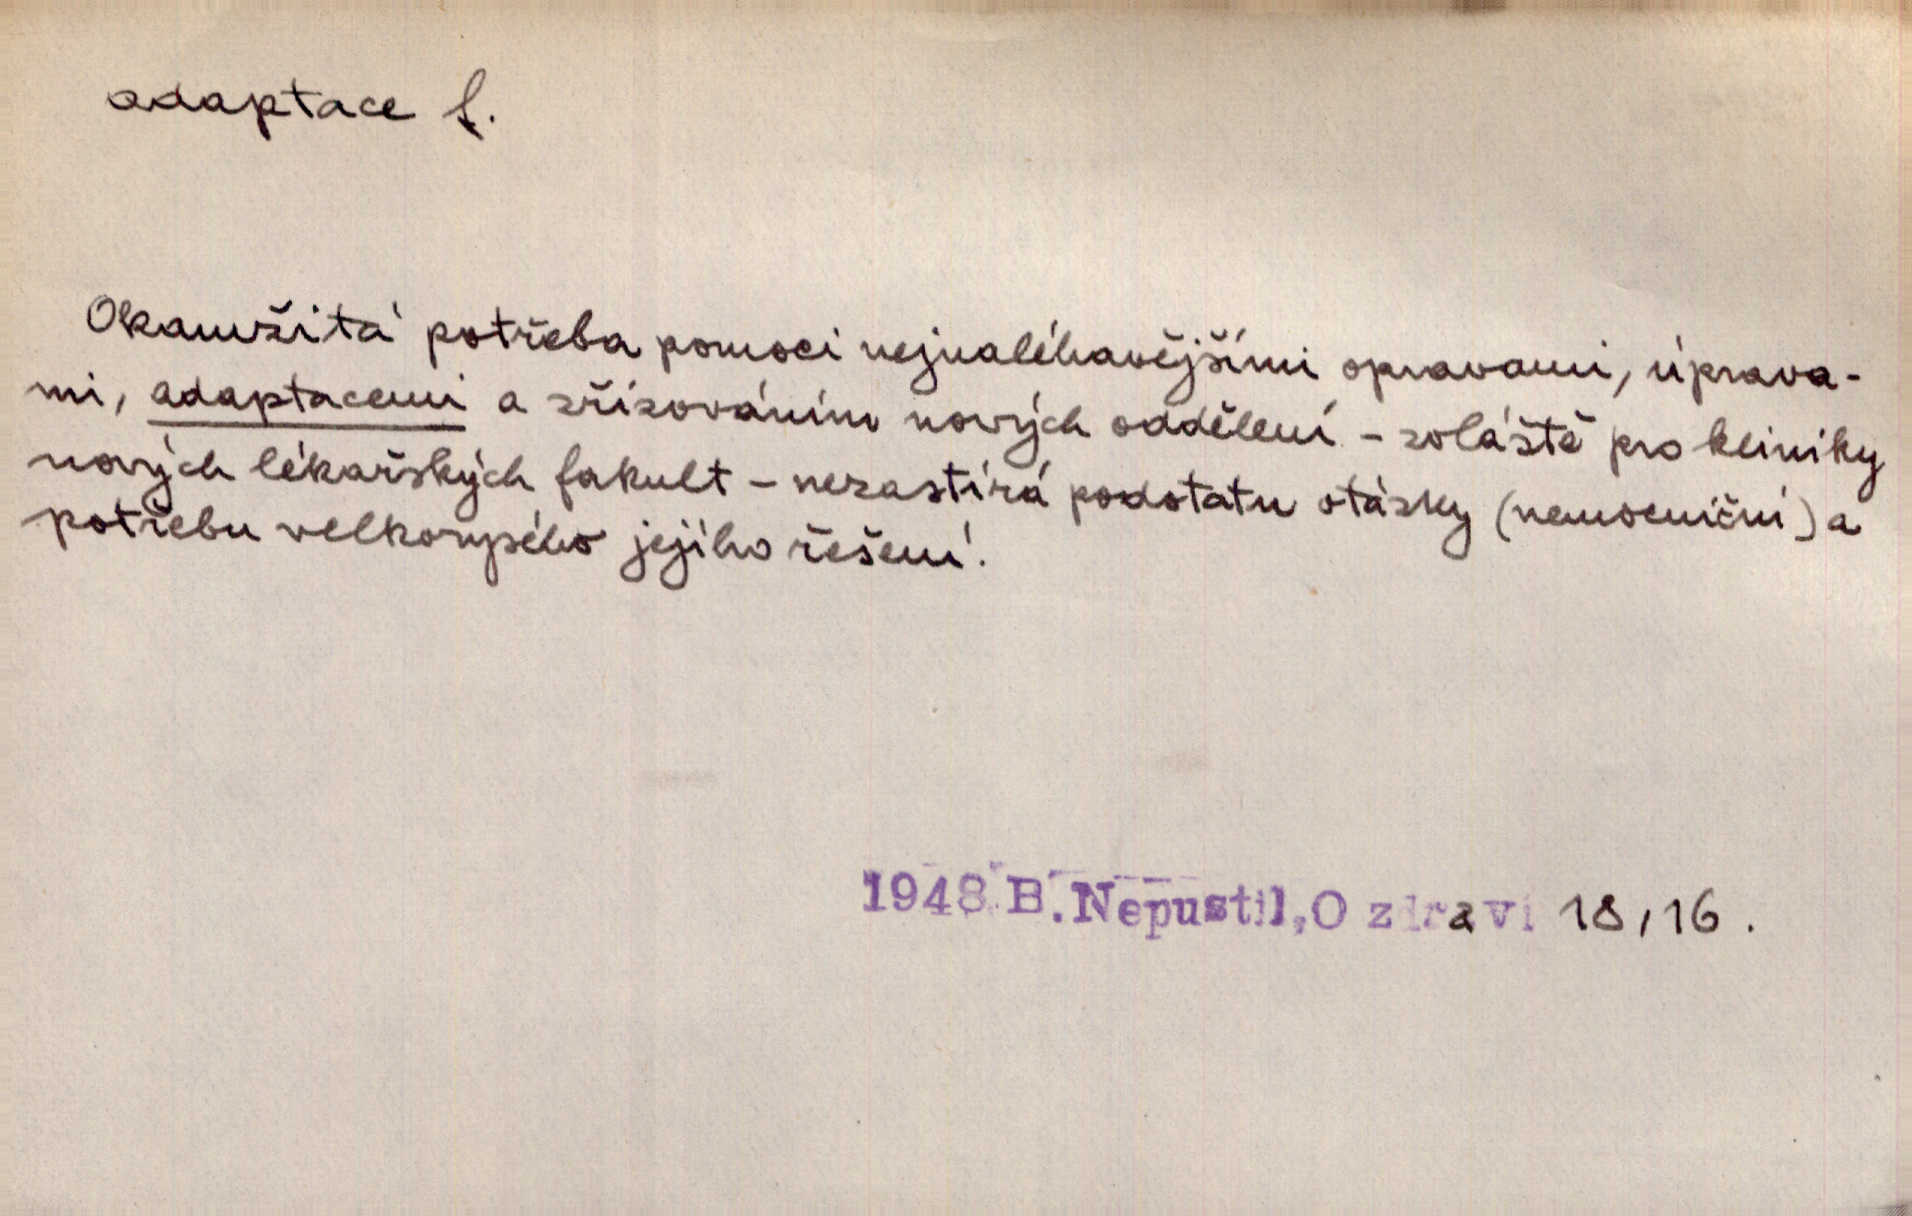 adaptace f.
Okamžitá potřeba pomoci nejnaléhavějšími opravami, úprava-
mi, adaptacemi a zřizováním nových oddělení - zvláště pro kliniky
nových lékařských fakult - nezastírá podstatu otázky (nemocniční) a
potřebu velkorysého jejího řešení.
1948 B. Nepustil, O zdraví 18, 16.